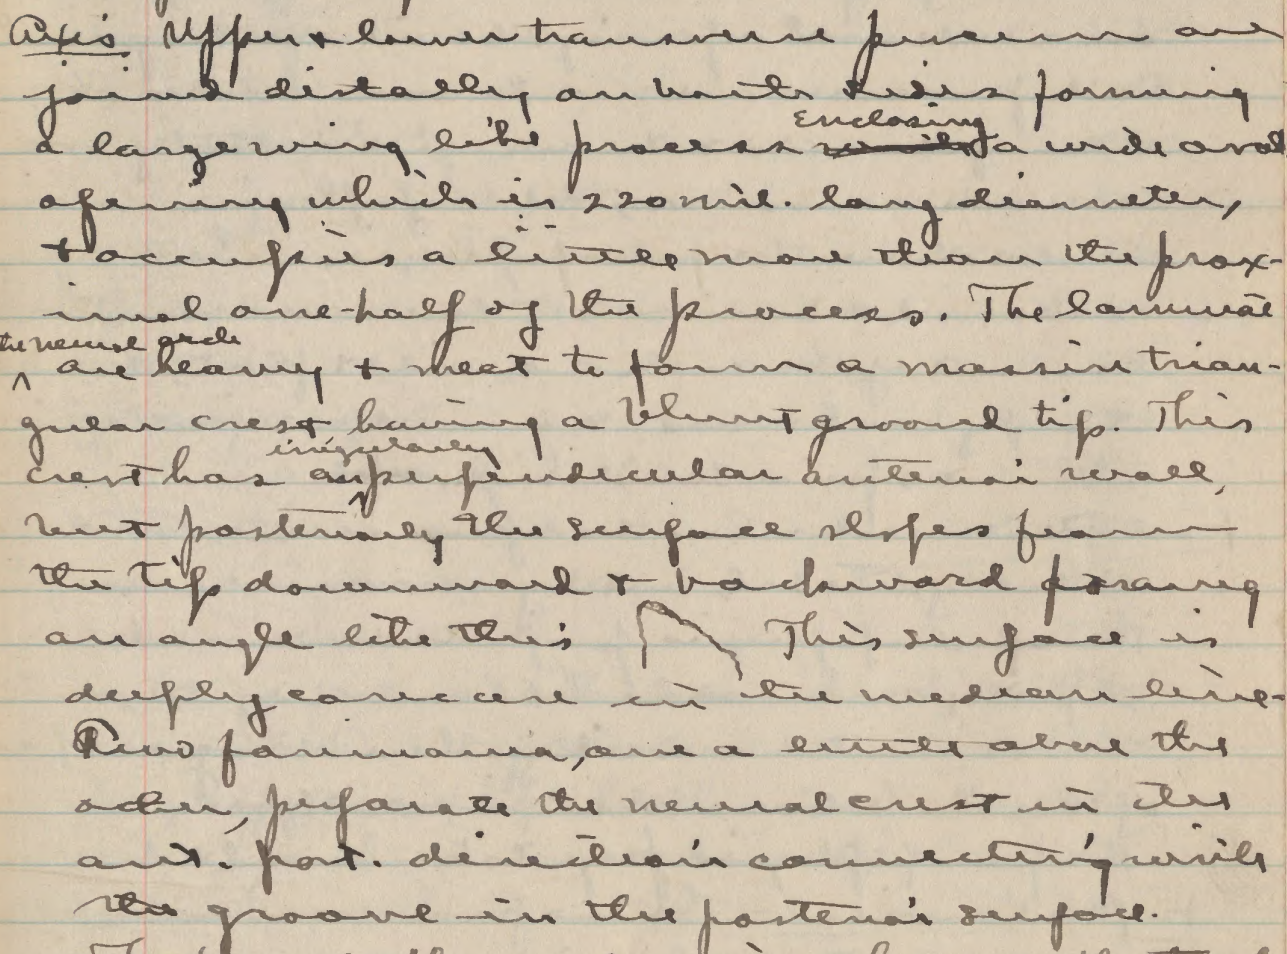 Axis Upper & lower transverse processes are
joined distally on both sides forming
a large wing like process with enclosing a wide oval
opening which is 220 mil. long diameter,
& occupies a little more than the prox-
imal one-half of the process. The laminae
the neural arch
are heavy & meet to form a massive trian-
gular crest having a blunt groovd tip. This
crest has an irregularly perpendicular anterior wall,
but posteriorly the surface slopes from
the tip downward & backward forming
an angle like this This surface is
deeply concave in the median line-
Two foramania, one a little above the
other, perforate the neural crest in the
ant. post. direction connecting with
the groove in the posterior surface.